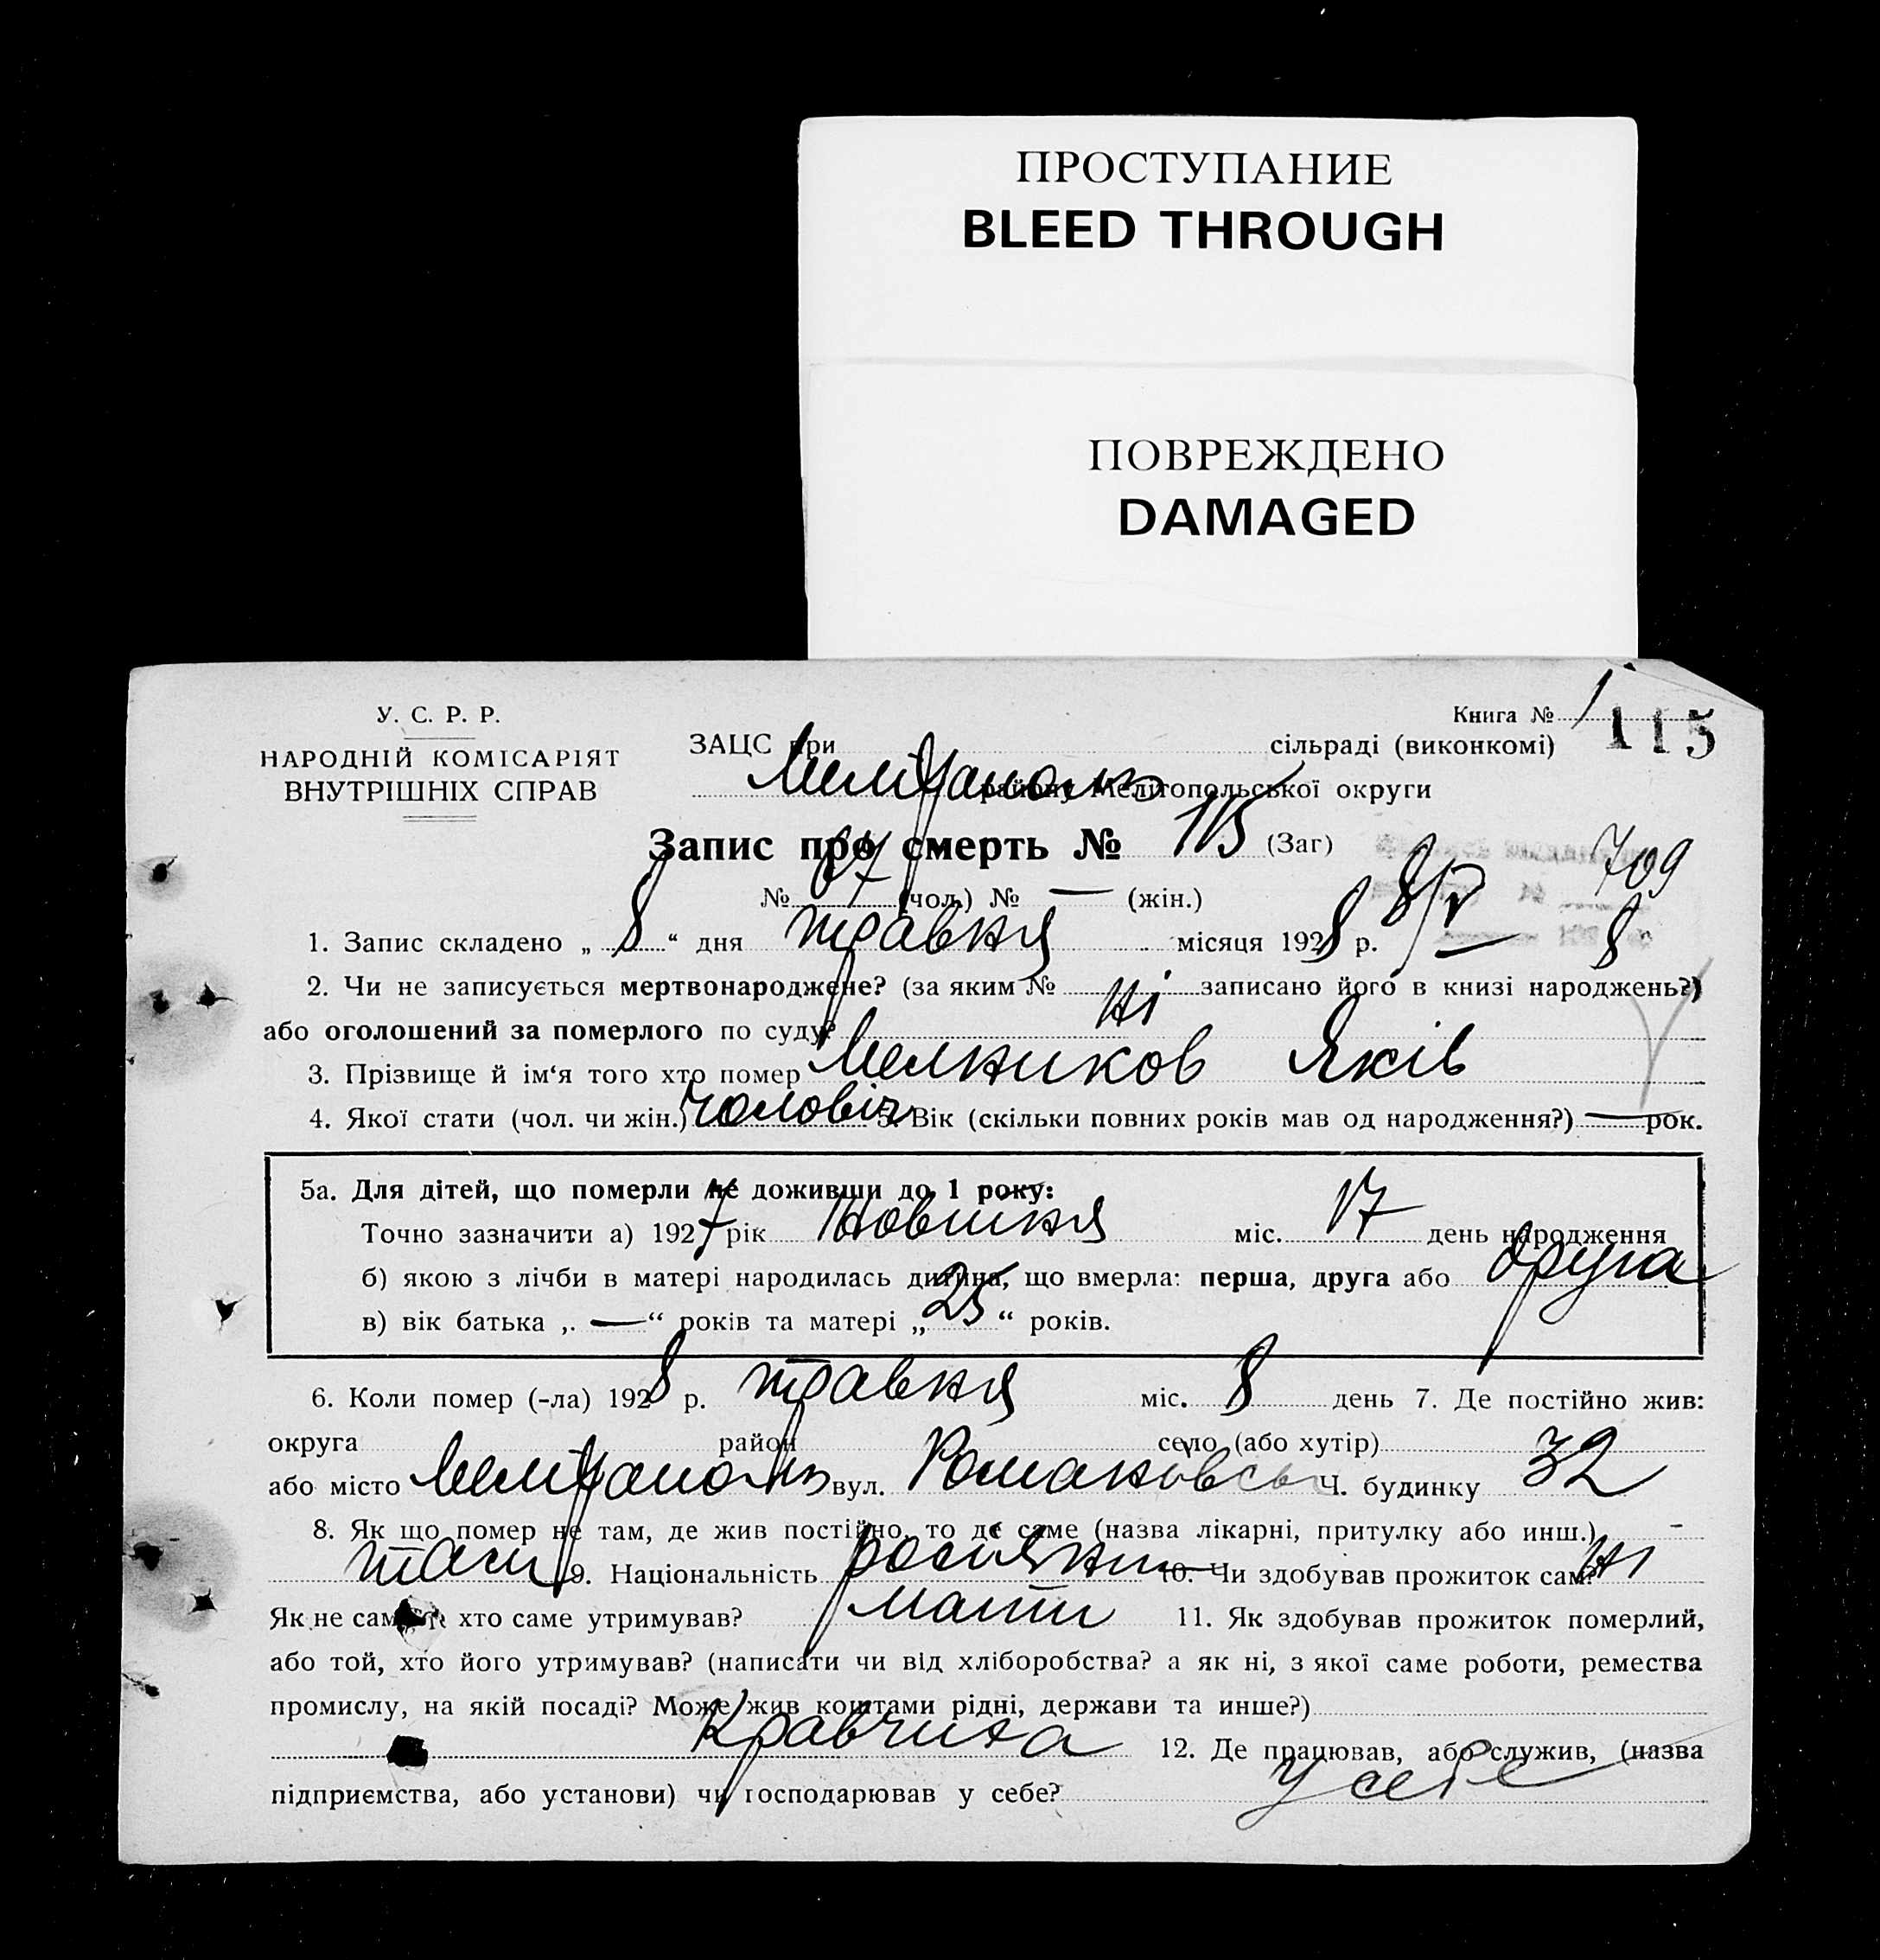 ПРОСТУПАНИЕ
BLEED THROUGH
ПОВРЕЖДЕНО
DAMAGED
У. С. Р. Р.
НАРОДНІЙ КОМІСАРІЯТ
ВНУТРІШНІХ СПРАВ
Книга № 1
115
ЗАЦС при сільраді (виконкомі)
Мелітополь району Мелітопольської округи
Запис про смерть № 115 (Заг)
709
№ 67 (чол.) № — (жін.)
1. Запис складено „ 8 “ дня травня місяця 1928 р. 8/V 8
2. Чи не записується мертвонароджене? (за яким № записано його в книзі народжень?)
або оголошений за померлого по суду? Ні
3. Прізвище й ім‘я того хто помер Мелников Яків
4. Якої стати (чол. чи жін.) чоловіч 5. Вік (скільки повних років мав од народження?) — рок.
5а. Для дітей, що померли не доживши до 1 року:
Точно зазначити а) 1927 рік Жовтня міс. 17 день народження
б) якою з лічби в матері народилась дитина, що вмерла: перша, друга або друга
в) вік батька „ — “ років та матері „ 25 “ років.
6. Коли помер (-ла) 1928 р. травня міс. 8 день 7. Де постійно жив:
округа район село (або хутір)
або місто Мелітополь вул. Ч. будинку 32
8. Як що помер не там, де жив постійно, то де саме (назва лікарні, притулку або инш.) –
там 9. Національність росіянин 10. Чи здобував прожиток сам? Ні
Як не сам, то хто саме утримував? Мати 11. Як здобував прожиток померлий,
або той, хто його утримував? (написати чи від хліборобства? а як ні, з якої саме роботи, ремества
промислу, на якій посаді? Може жив коштами рідні, держави та инше?)
Кравчиха 12. Де працював, або служив, (назва
підприємства, або установи) чи господарював у себе? У себе